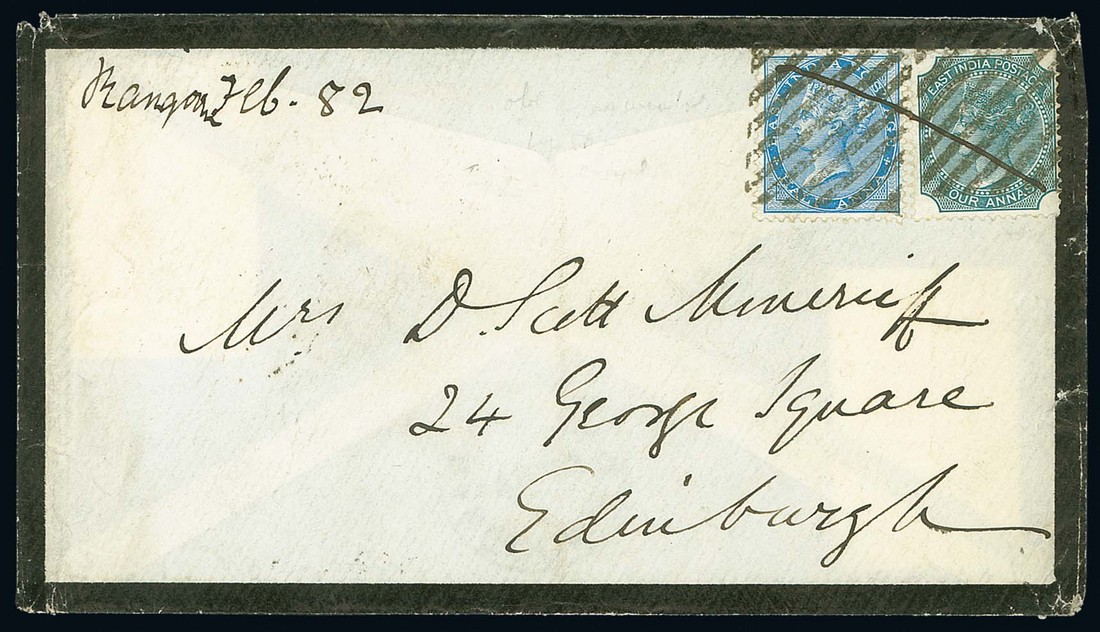 Rangoon Feb. 82
EAST INDIA POSTAGE
FOUR ANNAS
HALF ANNA
Mrs D. Scott Moncrieff
24 George Square
Edinburgh